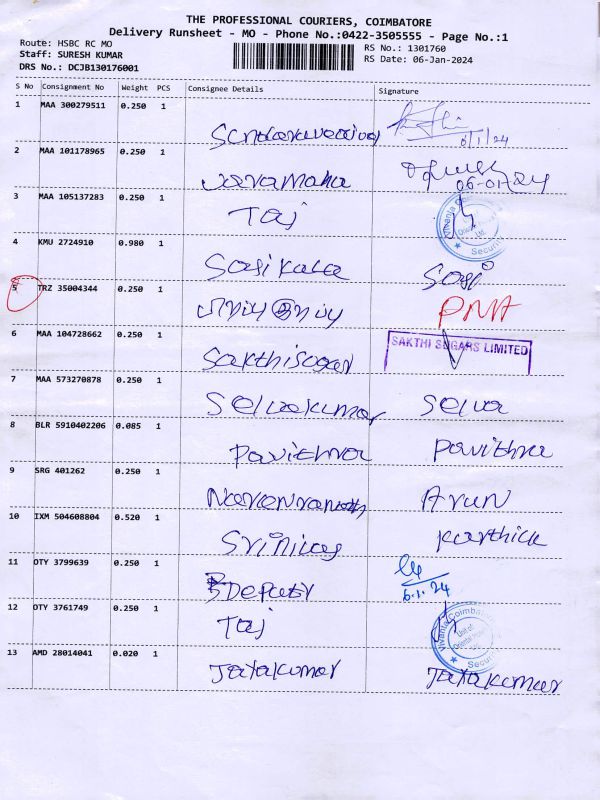 THE PROFESSIONAL COURIERS, COIMBATORE
Delivery Runsheet - MO - Phone No.:0422-3505555 - Page No.:1
Route: HSBC RC MO
Staff: SURESH KUMAR
DRS No.: DCJB130176001
RS No.: 1301760
RS Date: 06-Jan-2024
S No Consignment No Weight PCS Consignee Details Signature
1 MAA 300279511 0.250 1
6/1/24
2 MAA 101178965 0.250 1
06-01-24
3 MAA 105137283 0.250 1 Taj
4 KMU 2724910 0.980 1 Sasikala Sasi
5 TRZ 35004344 0.250 1 PNA
6 MAA 104728662 0.250 1 Sakthisugar SAKTHI SUGARS LIMITED
7 MAA 573270878 0.250 1 Selvakumar Selva
8 BLR 5910402206 0.085 1 Pavithra Pavithra
9 SRG 401262 0.250 1 Arun
10 IXM 504608804 0.520 1 Srinivas Karthick
11 OTY 3799639 0.250 1 Deputy
6.1.24
12 OTY 3761749 0.250 1 Taj
13 AMD 28014041 0.020 1 Jayakumar Jayakumar